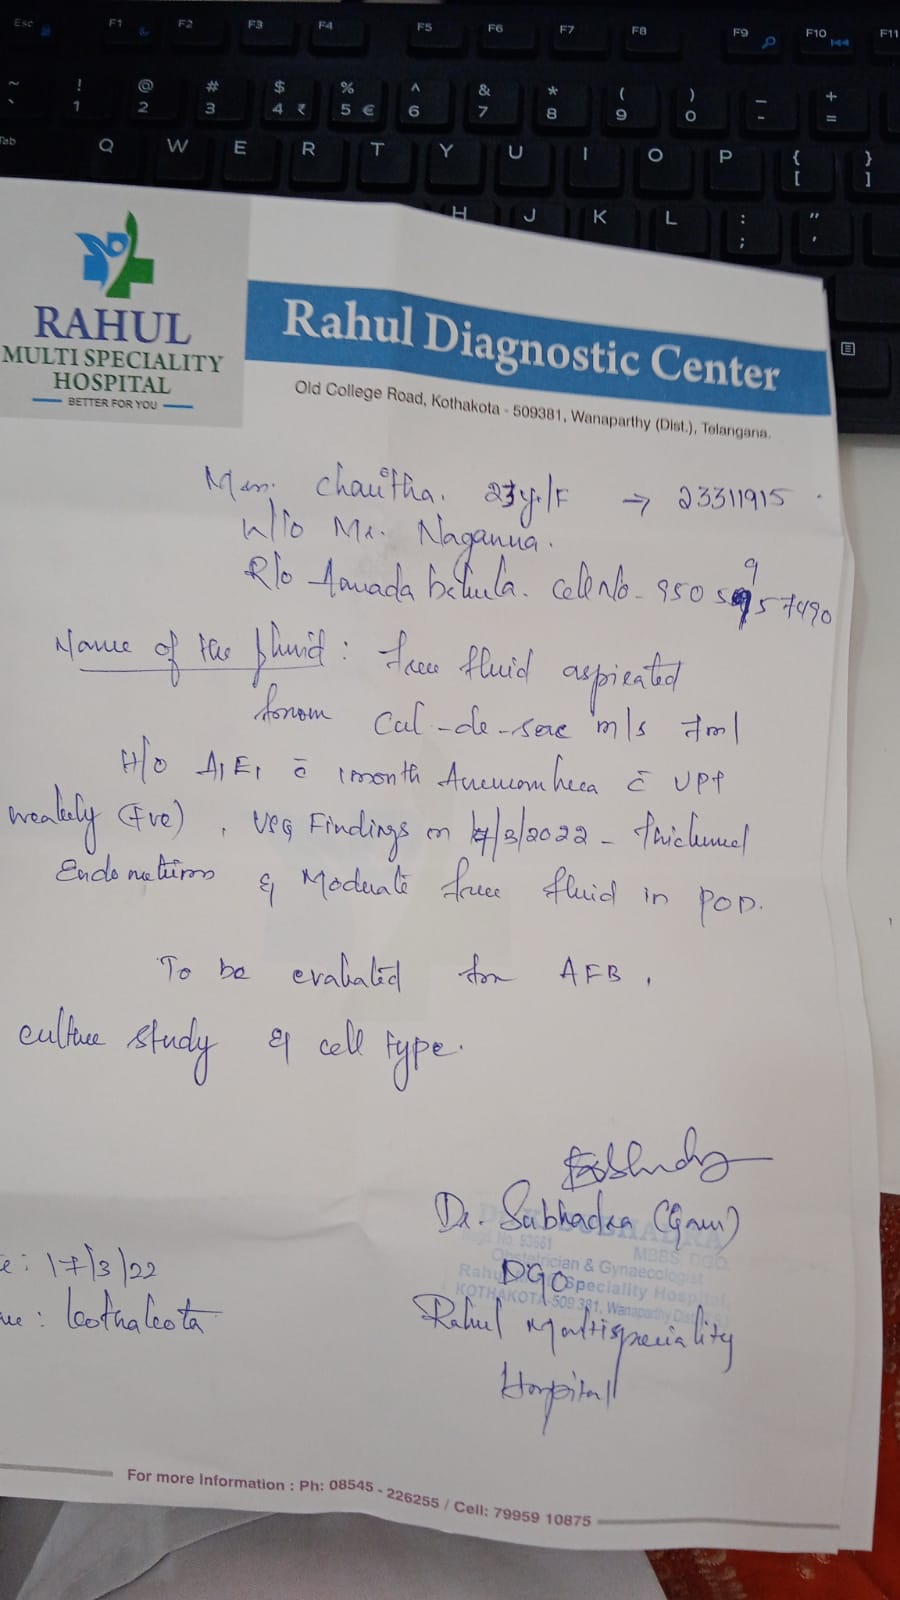 Esc F1 F2 F3 F4 F5 F6 F7 F8 F9 F10 F11
~ ! @ # $ % ^ & * ( ) _ +
` 1 2 3 4 ₹ 5 € 6 7 8 9 0 - =
Tab Q W E R T Y U I O P { [ } ]
H J K L : ; " '
RAHUL
MULTI SPECIALITY
HOSPITAL
BETTER FOR YOU
Rahul Diagnostic Center
Old College Road, Kothakota - 509381, Wanaparthy (Dist.), Telangana.
Chaitha. 23y/F → 23311915
W/o Mr. Naganna.
R/o Cell No-
Name of the fluid : free fluid aspirated
from Cul-de-sac m/s 7ml
H/o c̄ 1 month c̄ UPT
weakly (+ve), USG Findings on 17/3/2022 - thickened
Endometrium & Moderate free fluid in POD.
To be evaluated for AFB,
culture study & cell type.
Dr. Subhadra
DGO
Rahul Multispeciality
Hospital
MBBS, DGO
Obstetrician & Gynaecologist
Speciality Hospital,
KOTHAKOTA-509 381, Wanaparthy
e: 17/3/22
: Kothakota
For more Information : Ph: 08545 - 226255 / Cell: 79959 10875